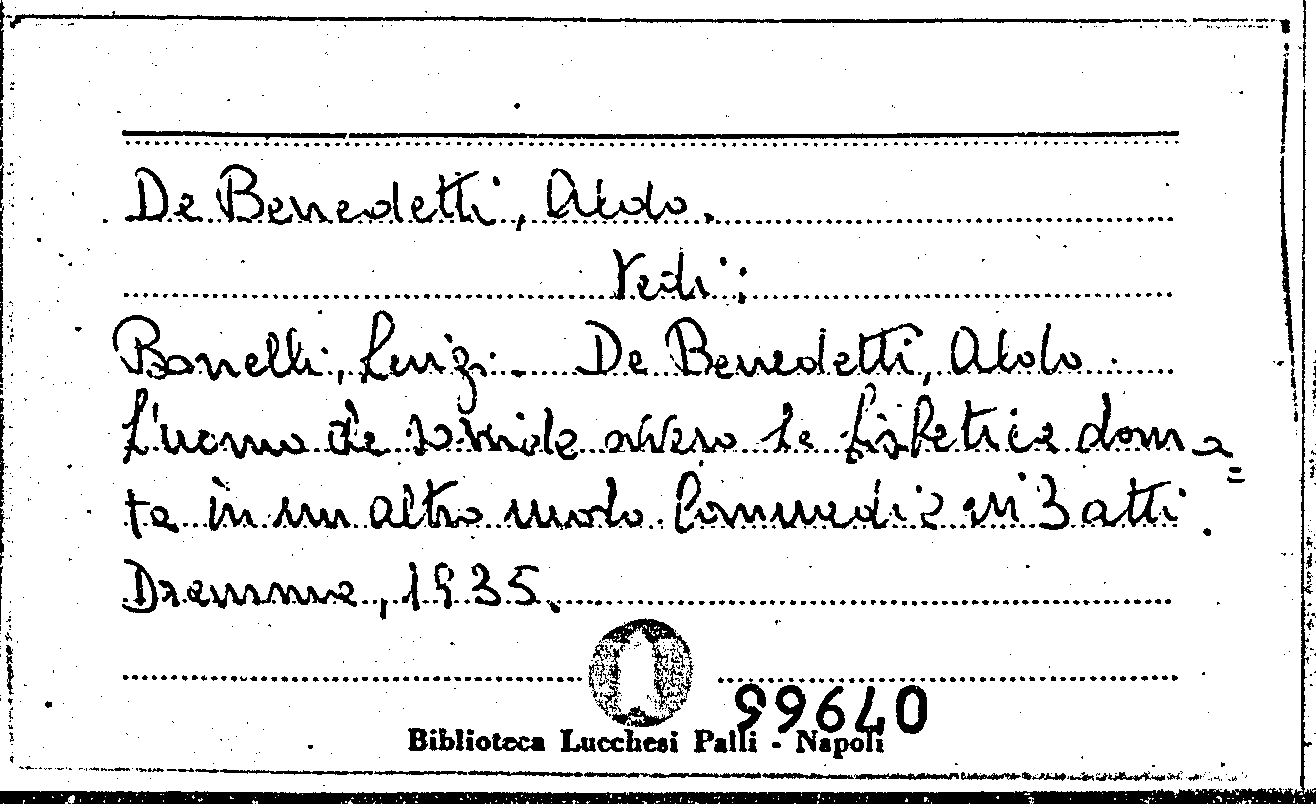 De Benedetti, Aldo.
Vedi:
Bonelli, Luigi - De Benedetti, Aldo.
L'uomo che sorride ovvero la bisbetica doma=
ta in un altro modo. Commedia in 3 atti.
Dramma, 1935.
99640
Biblioteca Lucchesi Palli - Napoli